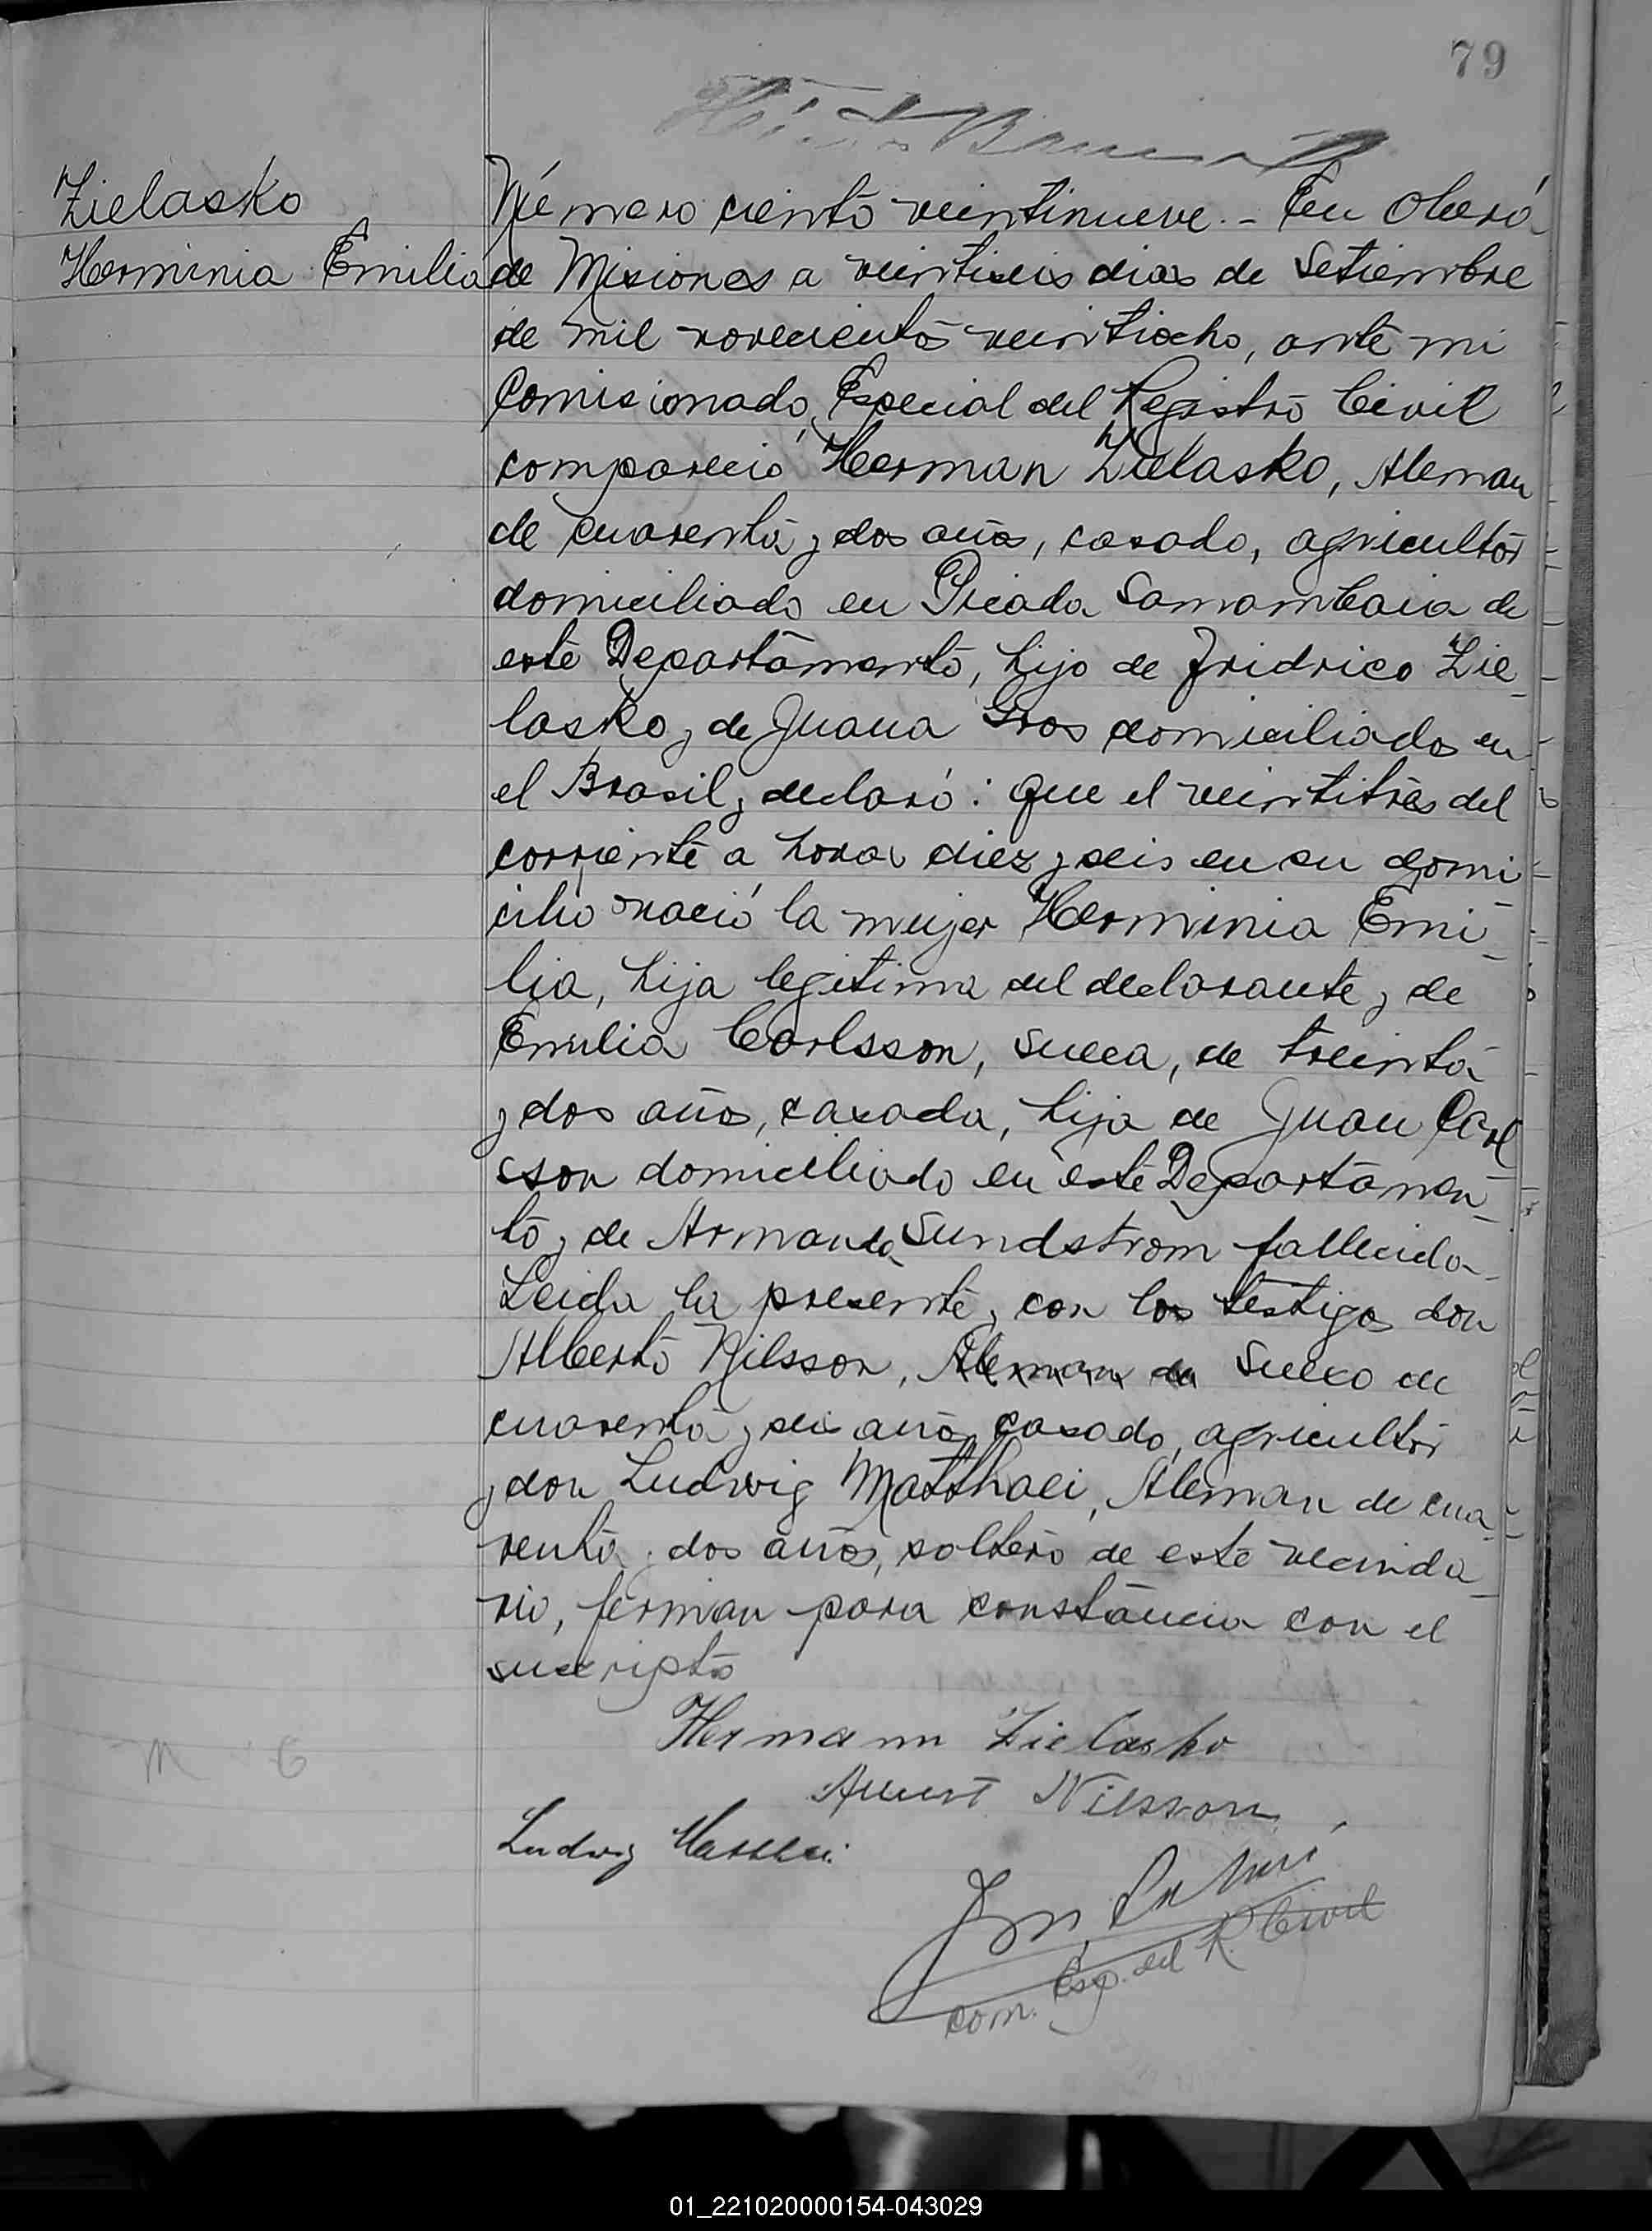 79
Zielasko
Herminia Emilia
Número ciento veintinueve.- En Oberá
de Misiones a veintiseis dias de Setiembre
de mil novecientos veintiocho, ante mi
Comisionado Especial del Registro Civil
compareció Herman Zielasko, Aleman
de cuarenta y dos años, casado, agricultor
domiciliado en Picada Samambaia de
este Departamento, hijo de Fridrico Zie-
lasko y de Juana Gros domiciliados en
el Brasil y declaró: que el veintitres del
corriente a horas diez y seis en su domi-
cilio nació la mujer Herminia Emi-
lia, hija legitima del declarante y de
Emilia Carlsson, sueca, de treinta
y dos años, casada, hija de Juan Carl
sson domiciliado en este Departamen-
to y de Armanda Sundstrom fallecida-
Leida la presente y con los testigos don
Alberto Nilsson, Aleman de Sueco de
cuarenta y seis años casado, agricultor
y don Ludwig Matthaei, Aleman de cua-
renta y dos años, soltero de este vecinda-
rio, firman para constancia con el
suscripto
Hermann Zielasko
Albert Nilsson
Ludwig Matthaei
Com. Esp. del R. Civil
01_221020000154-043029